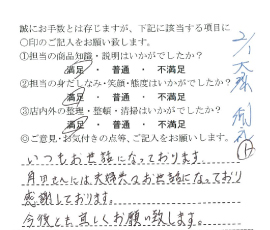 誠にお手数とは存じますが、下記に該当する項目に
○印のご記入をお願い致します。
①担当の商品知識・説明はいかがでしたか？
満足 ・ 普通 ・ 不満足
②担当の身だしなみ・笑顔・態度はいかがでしたか？
満足 ・ 普通 ・ 不満足
③店内外の整理・整頓・清掃はいかがでしたか？
満足 ・ 普通 ・ 不満足
◎ご意見・お気付きの点等、ご記入をお願いします。
いつもお世話になっております
さんには夫婦共々お世話になっており
感謝しております。
今後とも宜しくお願い致します。